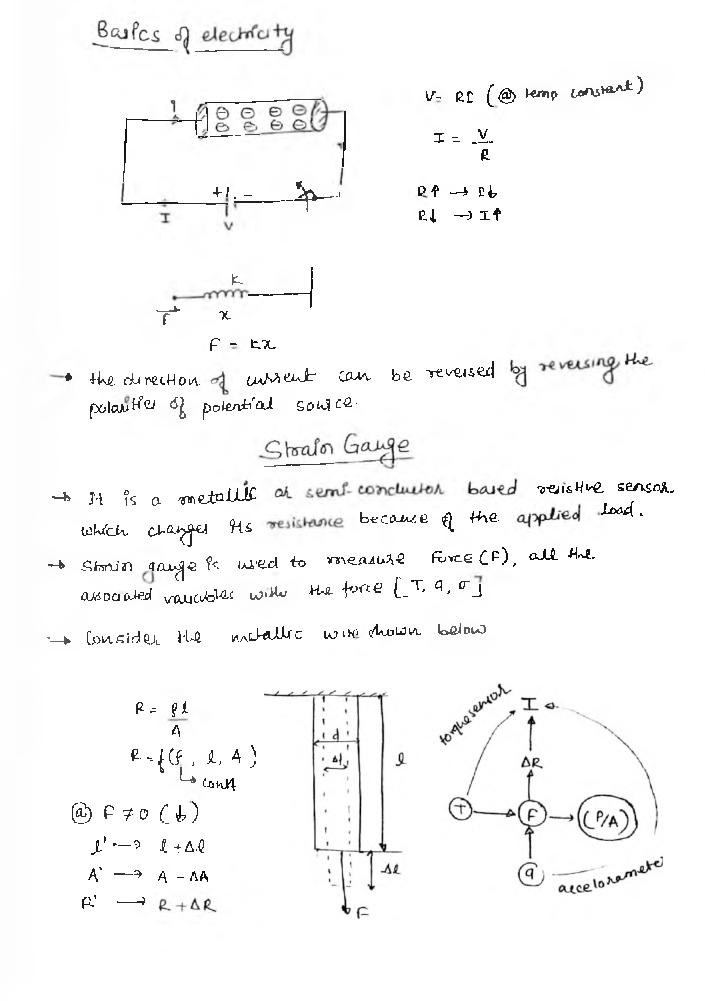 Basics of electricity
V = RI (@ temp constant)
I
I = V/R
+ -
R↑ → I↓
I
V
R↓ → I↑
K
F
x
F = kx
→ the direction of current can be reversed by reversing the
polarities of potential source.
Strain Gauge
→ It is a metallic or semi-conductor based resistive sensor
which changes its resistance because of the applied load.
→ Strain gauge is used to measure Force (F), all the
associated variables with the force [T, a, σ]
→ Consider the metallic wire shown below
R = ρl/A
R = f(ρ, l, A)
const
@ F ≠ 0 (↓)
l' → l + Δl
A' → A - ΔA
R' → R + ΔR
d
l
Δl
F
torque sensor
I
ΔR
T
F
(P/A)
a
accelorameter